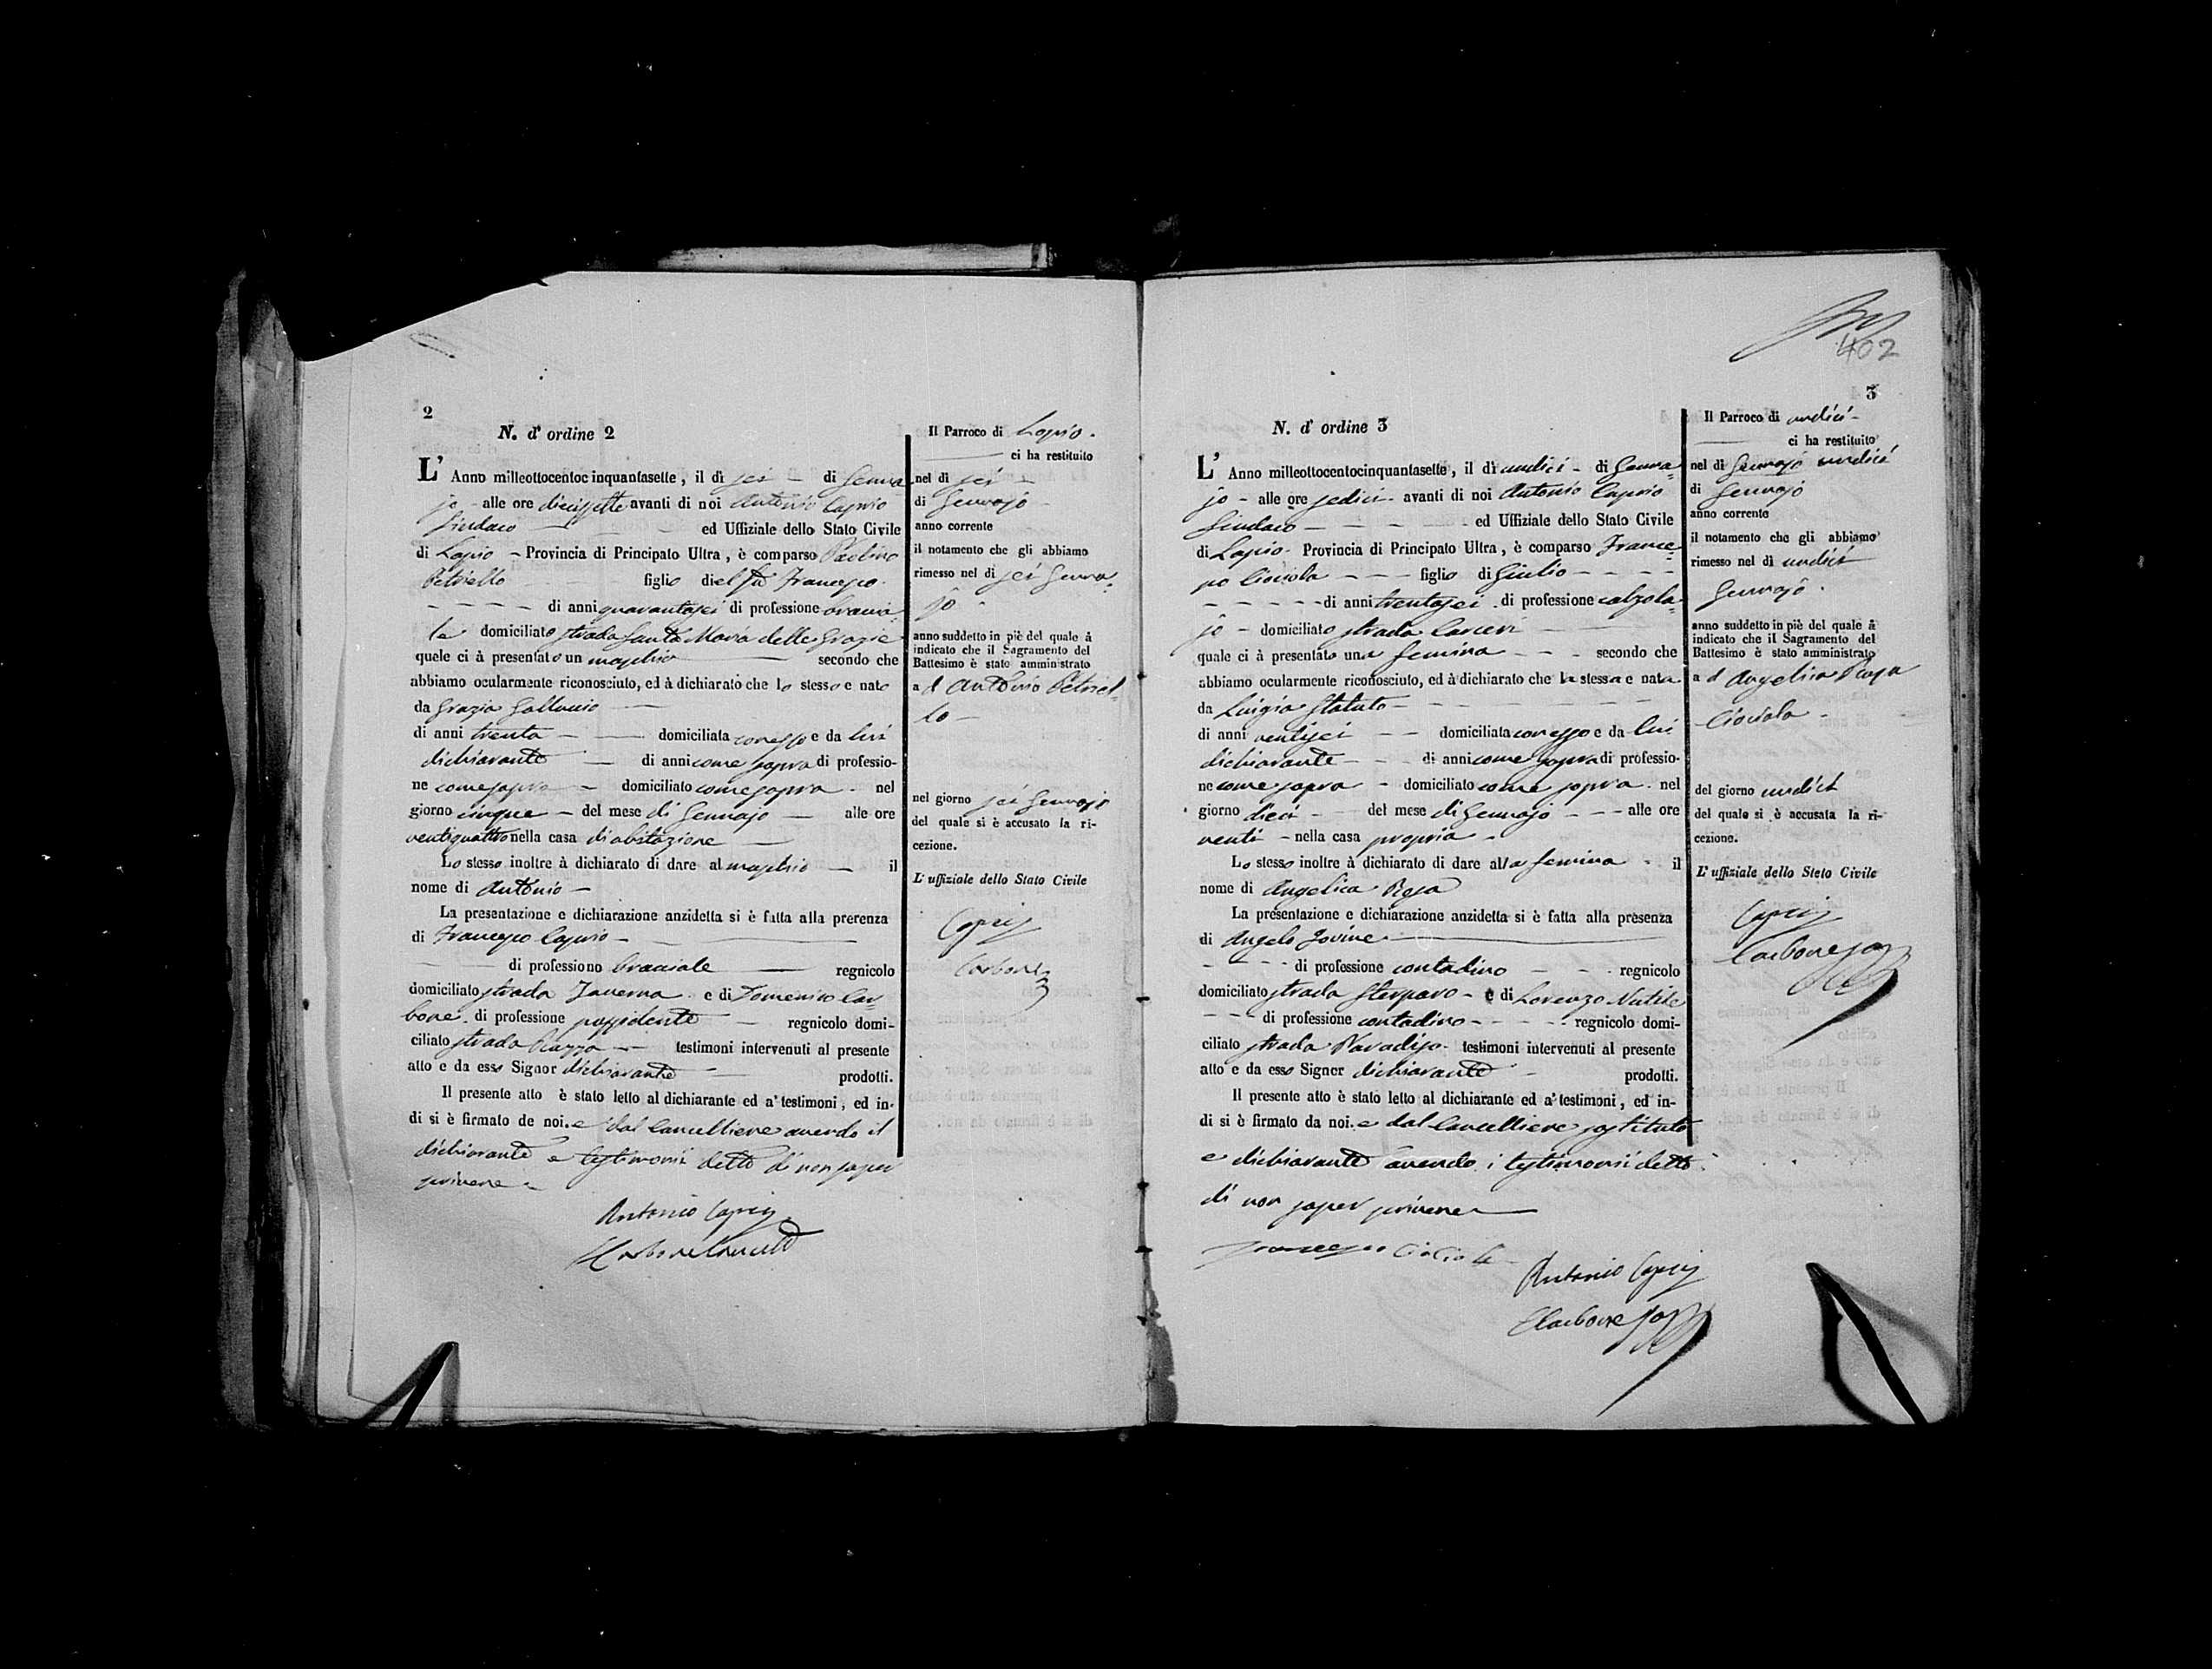 2
N. d' ordine 2
L' Anno milleottocentocinquantasette, il dì sei - di Genna
jo - alle ore diecissette avanti di noi Antonio Caprio
Sindaco - ed Uffiziale dello Stato Civile
di Lapio - Provincia di Principato Ultra, è comparso Paolino
Petriello figlio del fu Francesco
di anni quarantasei di professione braccia
le domiciliato strada Santa Maria delle Grazie
quele ci à presentato un maschio secondo che
abbiamo ocularmente riconosciuto, ed à dichiarato che lo stesso e nato
da Grazia Galluccio
di anni trenta - domiciliata con esso e da lui
dichiarante - di anni come sopra di professio-
ne come sopra - domiciliato come sopra - nel
giorno cinque - del mese di Gennajo - alle ore
ventiquattro nella casa di abitazione
Lo stesso inoltre à dichiarato di dare al maschio - il
nome di Antonio -
La presentazione e dichiarazione anzidetta si è fatta alla prerenza
di Francesco Caprio -
di professiono bracciale - regnicolo
domiciliato strada Taverna e di Domenico Car
bone di professione possidente - regnicolo domi-
ciliato strada Piazza - testimoni intervenuti al presente
atto e da esso Signor dichiarante - prodotti.
Il presente atto è stato letto al dichiarante ed a' testimoni, ed in-
di si è firmato de noi. e dal Cancelliere avendo il
dichiarante e testimonii detto di non saper
scrivere -
Antonio Caprio
Carbone
Il Parroco di Lapio.
ci ha restituito
nel dì sei
di Gennajo
anno corrente
il notamento che gli abbiamo
rimesso nel di sei Genna-
jo -
anno suddetto in piè del quale à
indicato che il Sagramento del
Battesimo è stato amministrato
a d Antonio Petriel-
lo -
nel giorno sei Gennajo
del quale si è accusato la ri-
cezione.
L' uffiziale dello Stato Civile
Caprio
Carbone
402
3
N. d' ordine 3
L' Anno milleottocentocinquantasette, il dì undici - di Genna=
jo - alle ore sedici - avanti di noi Antonio Caprio
Sindaco - ed Uffiziale dello Stato Civile
di Lapio - Provincia di Principato Ultra, è comparso France=
sco Ciociola - figlio di Giulio -
di anni trentasei di professione calzola=
jo - domiciliato strada Carceri
quale ci à presentato una femina - secondo che
abbiamo ocularmente riconosciuto, ed à dichiarato che la stessa e nata
da Luigia Statuto -
di anni ventisei - domiciliata con esso e da lui
dichiarante - di anni come sopra di professio-
ne come sopra - domiciliato come sopra. nel
giorno dieci - del mese di Gennajo - alle ore
venti - nella casa propria -
Lo stesso inoltre à dichiarato di dare alla femina - il
nome di Angelica Rosa
La presentazione e dichiarazione anzidetta si è fatta alla presenza
di Angelo Jovine
di professione contadino - regnicolo
domiciliato strada Sterparo - e di Lorenzo Nutile
di professione contadino - regnicolo domi-
ciliato strada Paradiso - testimoni intervenuti al presente
atto e da esso Signor dichiarante - prodotti.
Il presente atto è stato letto al dichiarante ed a' testimoni, ed in-
di si è firmato da noi. e dal Cancelliere sostituto
e dichiarante avendo i testimonii detto
di non saper scrivere
Francesco Ciociola
Antonio Caprio
Carbone
Il Parroco di undici -
ci ha restituito
nel dì Gennajo undici
di Gennajo
anno corrente
il notamento che gli abbiamo
rimesso nel dì undici
Gennajo.
anno suddetto in piè del quale à
indicato che il Sagramento del
Battesimo è stato amministrato
a d Angelica Rosa
Ciociola -
del giorno undici
del quale si è accusata la ri-
cezione.
L' uffiziale dello Steto Civile
Caprio
Carbone